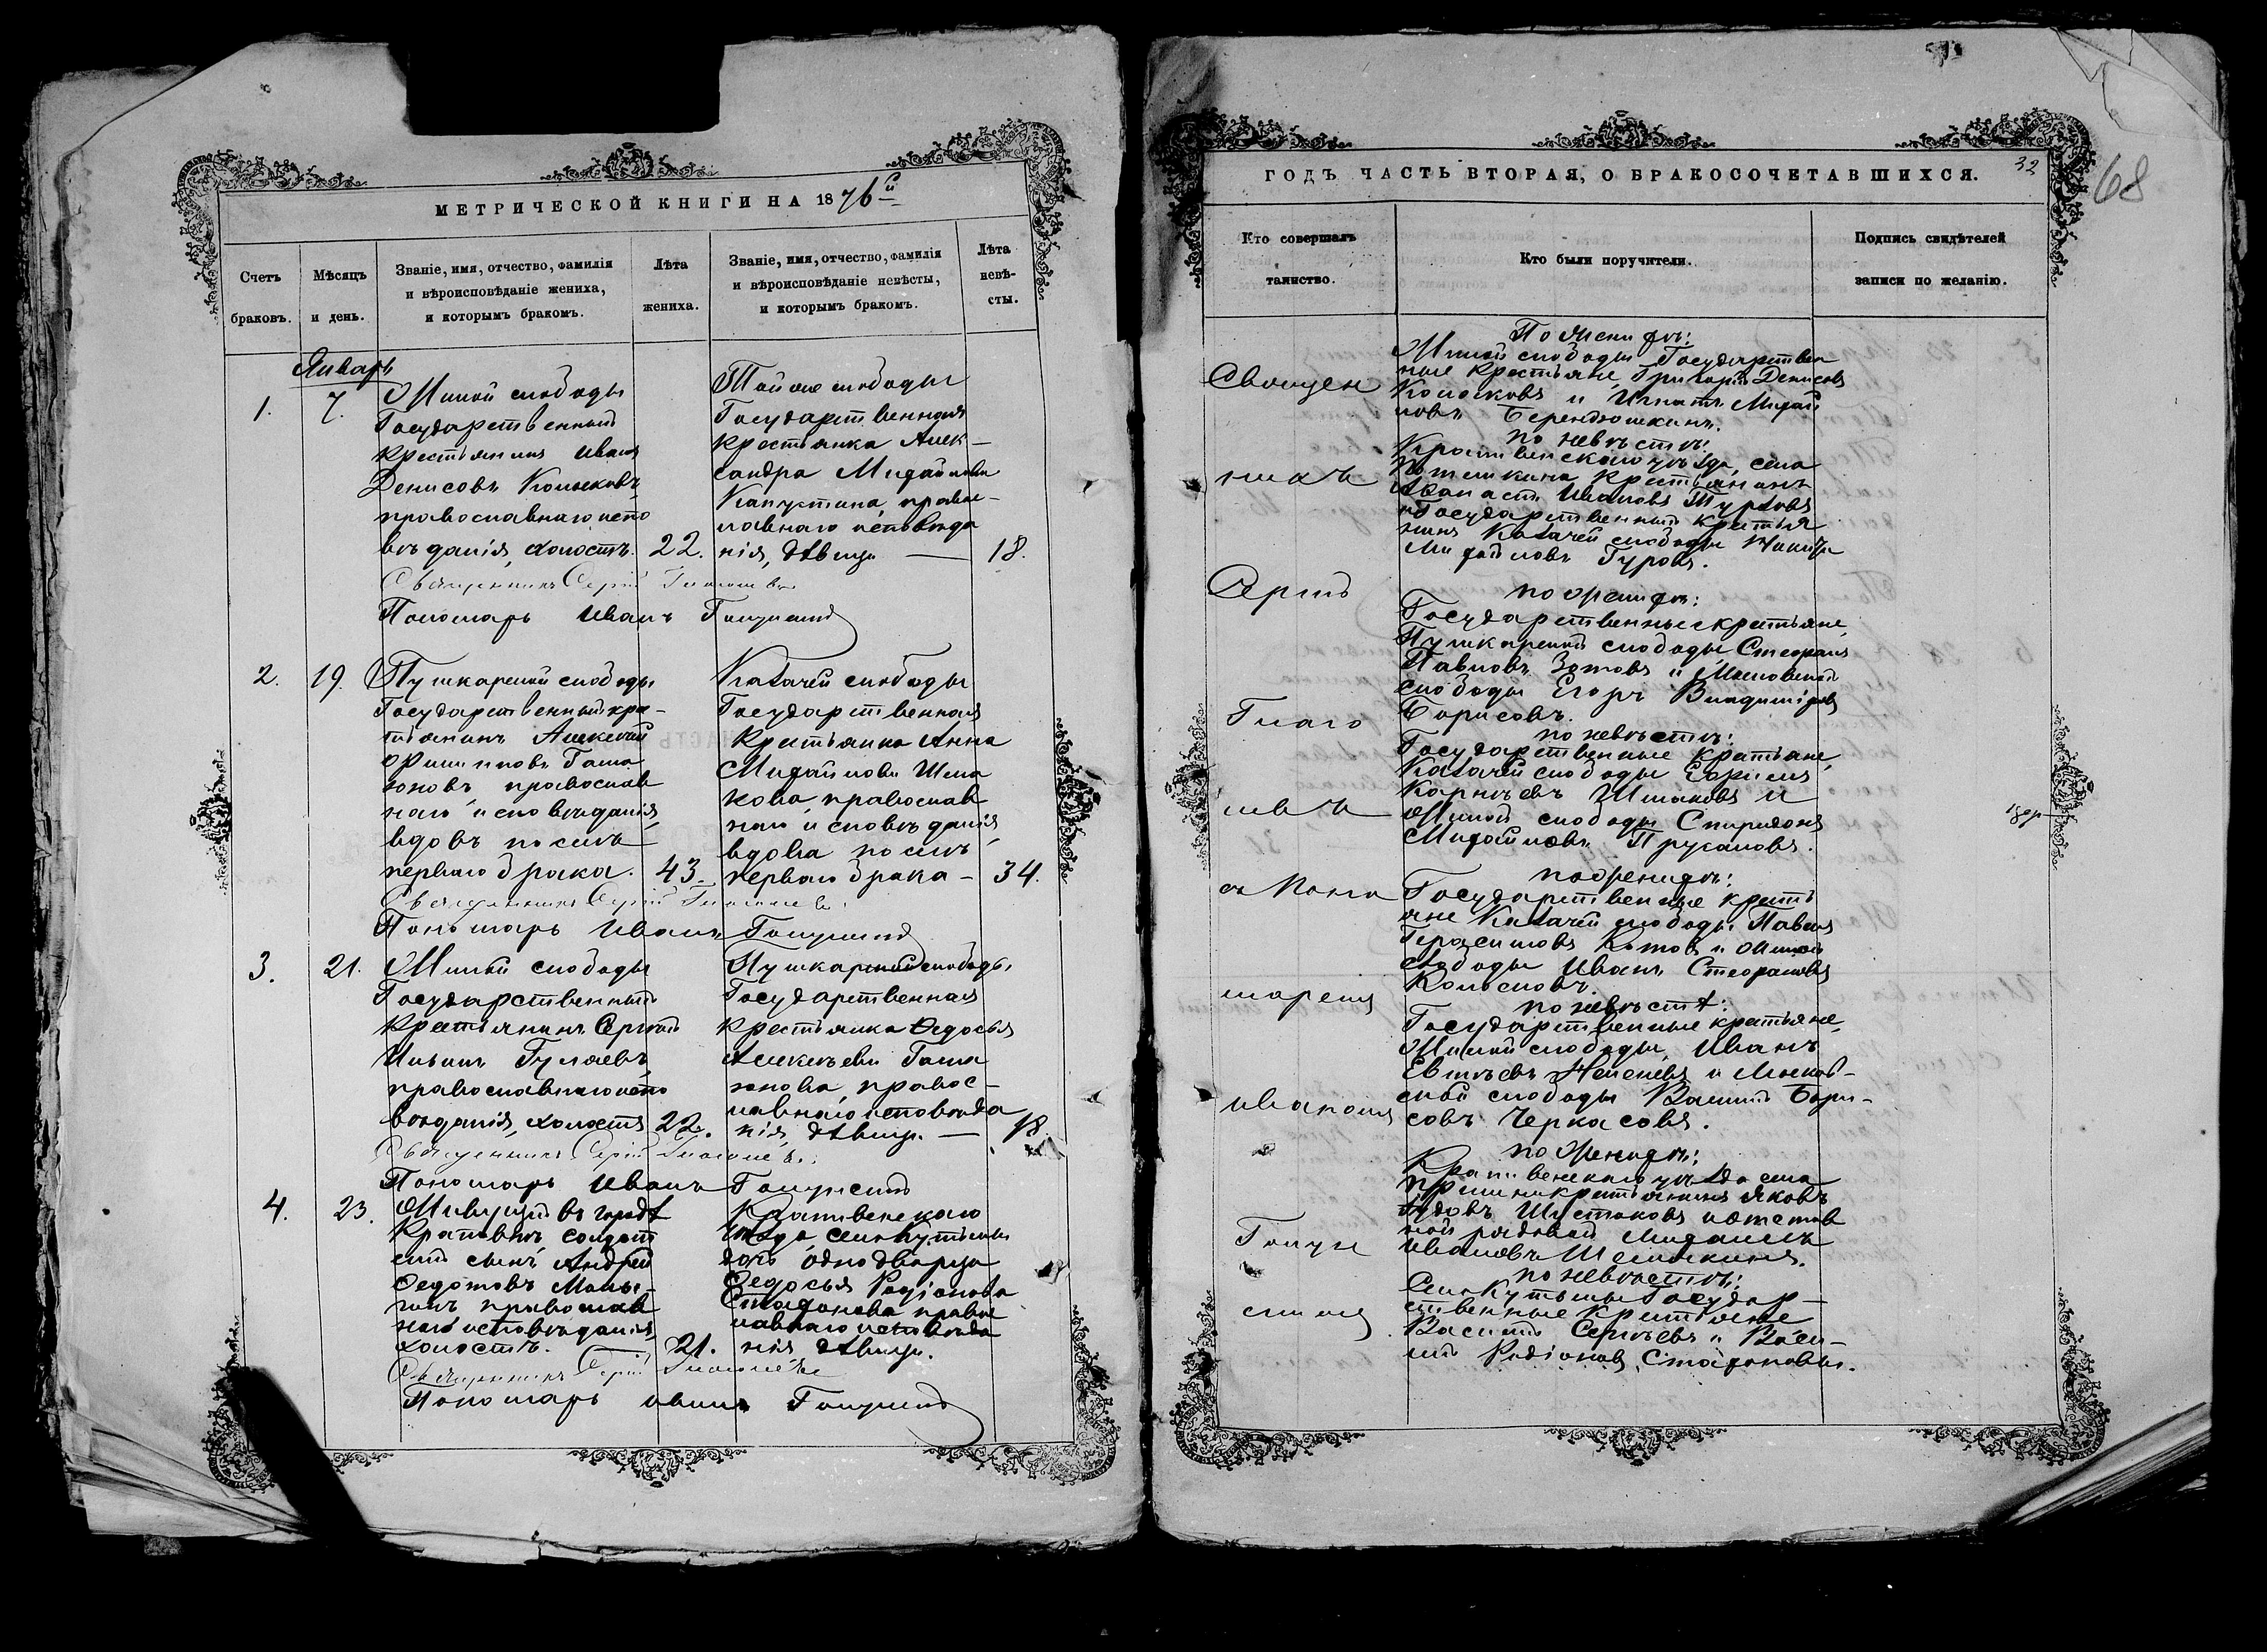 МЕТРИЧЕСКОЙ КНИГИ НА 1876й
Счетъ
браковъ.
Мѣсяцъ
и день.
Званіе, имя, отчество, фамилія
и вѣроисповѣданіе жениха,
и которымъ бракомъ.
Лѣта
жениха.
Званіе, имя, отчество, фамилія
и вѣроисповѣданіе невѣсты,
и которымъ бракомъ.
Лѣта
невѣ-
сты.
Январь
1.
7.
слободы
Государственный
крестьянинъ Иванъ
Денисовъ
православнаго испо
вѣданія, холостъ.
22.
Той же слободы
Государственная
крестьянка Алек-
сандра Михайлова
Капустина, правос-
лавнаго исповѣда
нія, дѣвица
18.
Священникъ Сергій
Пономарь Иванъ
2.
19.
Пушкарской слободы
Государственный кре-
стьянинъ Алексѣй
православ
наго исповѣданія,
вдовъ послѣ
перваго брака.
43.
Казачей слободы
Государственная
крестьянка Анна
Михайлова
православ
наго исповѣданія,
вдова послѣ
перваго брака -
34.
Священникъ Сергій
Пономарь Иванъ
3.
21.
слободы
Государственный
крестьянинъ Сергѣй
Гуляевъ,
православнаго испо
вѣданія, холостъ
22.
Пушкарской слободы
Государственная
крестьянка Ѳедосья
Алексѣева
правос-
лавнаго исповѣда
нія, дѣвица. —
18.
Священникъ Сергій
Пономарь Иванъ
4.
23.
въ городѣ
Крапивнѣ солдат
скій сынъ Андрей
Ѳедотовъ
православ
наго исповѣданія,
холостъ.
21.
Крапивенскаго
уѣзда,
дочь однодворца
Ѳедосья Родіонова
Стафонова правос
лавнаго исповѣда
нія дѣвица.
Священникъ Сергій
Пономарь Иванъ
ГОДЪ ЧАСТЬ ВТОРАЯ, О БРАКОСОЧЕТАВШИХСЯ.
32
68
Кто совершалъ
таинство.
Кто были поручители.
Подпись свидѣтелей
записи по желанію.
Священ
никъ
Сергій
Глаго
левъ
съ Поно
маремъ
Иваномъ
По женихѣ:
слободы Государствен
ные крестьяне, Григорій Денисовъ
и Игнатъ Михай
ловъ Берендюшкинъ.
по невѣстѣ:
Крапивенскаго уѣзда, села
крестьянинъ
Аѳанасій Ивановъ Турковъ
и Государственный крестья
нинъ Казачей слободы Никита
Михайловъ Гуровъ.
по женихѣ:
Государственные крестьяне,
Пушкарской слободы Стефанъ
Павловъ Зотовъ и Московской
слободы Егоръ Владиміровъ
Борисовъ.
по невѣстѣ:
Государственные крестьяне,
Казачей слободы
Карнѣевъ и
слободы Спиридонъ
Михайловъ
по женихѣ:
Государственные кресть
яне Казачей слободы Павелъ
Герасимовъ Котовъ и
слободы Иванъ Стефановъ
по невѣстѣ:
Государственные крестьяне,
слободы Иванъ
и Москов-
ской слободы Василій Бори-
совъ Черкасовъ.
по женихѣ:
Крапивенскаго уѣзда села
крестьянинъ Яковъ
Шустиковъ и отстав
ной рядовой Михаилъ
Ивановъ
по невѣстѣ:
Государ-
ственные крестьяне
Василій Сергѣевъ и Васи-
лій Родіоновъ Стафоновы.